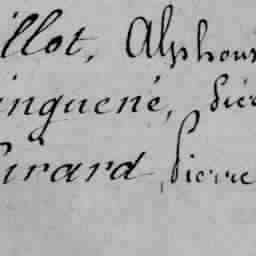 illot, Alphons
inguené, Pier
Girard, Pierre